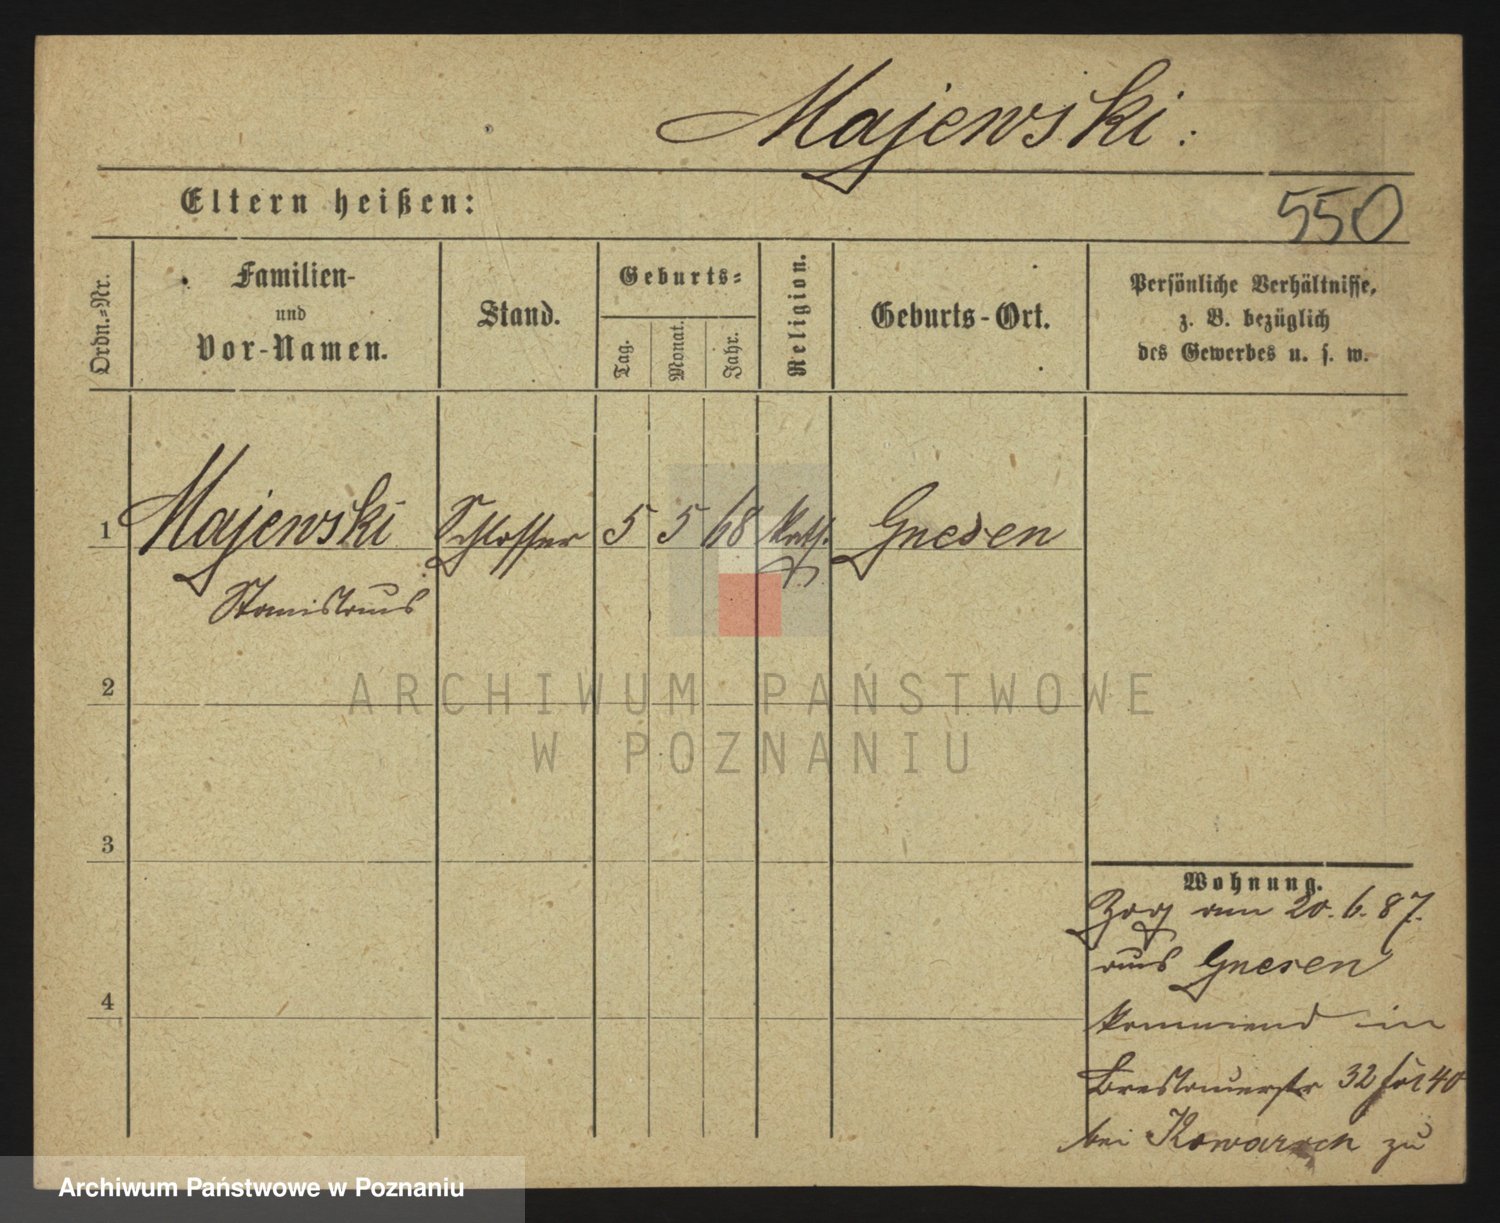 Majewski.
Eltern heißen:
550
Ordn.-Nr.
Familien-
und
Vor-Namen.
Stand.
Geburts-
Tag.
Monat.
Jahr.
Religion.
Geburts-Ort.
Persönliche Verhältnisse,
z. B. bezüglich
des Gewerbes u. s. w.
1 Majewski Schlosser 5 5 68 kath. Gnesen
Stanislaus
2
ARCHIWUM PAŃSTWOWE
W POZNANIU
3
Wohnung.
Zog am 20. 6. 87.
aus Gnesen
kommend in
Breslauerstr 32
4
bei zu
Archiwum Państwowe w Poznaniu